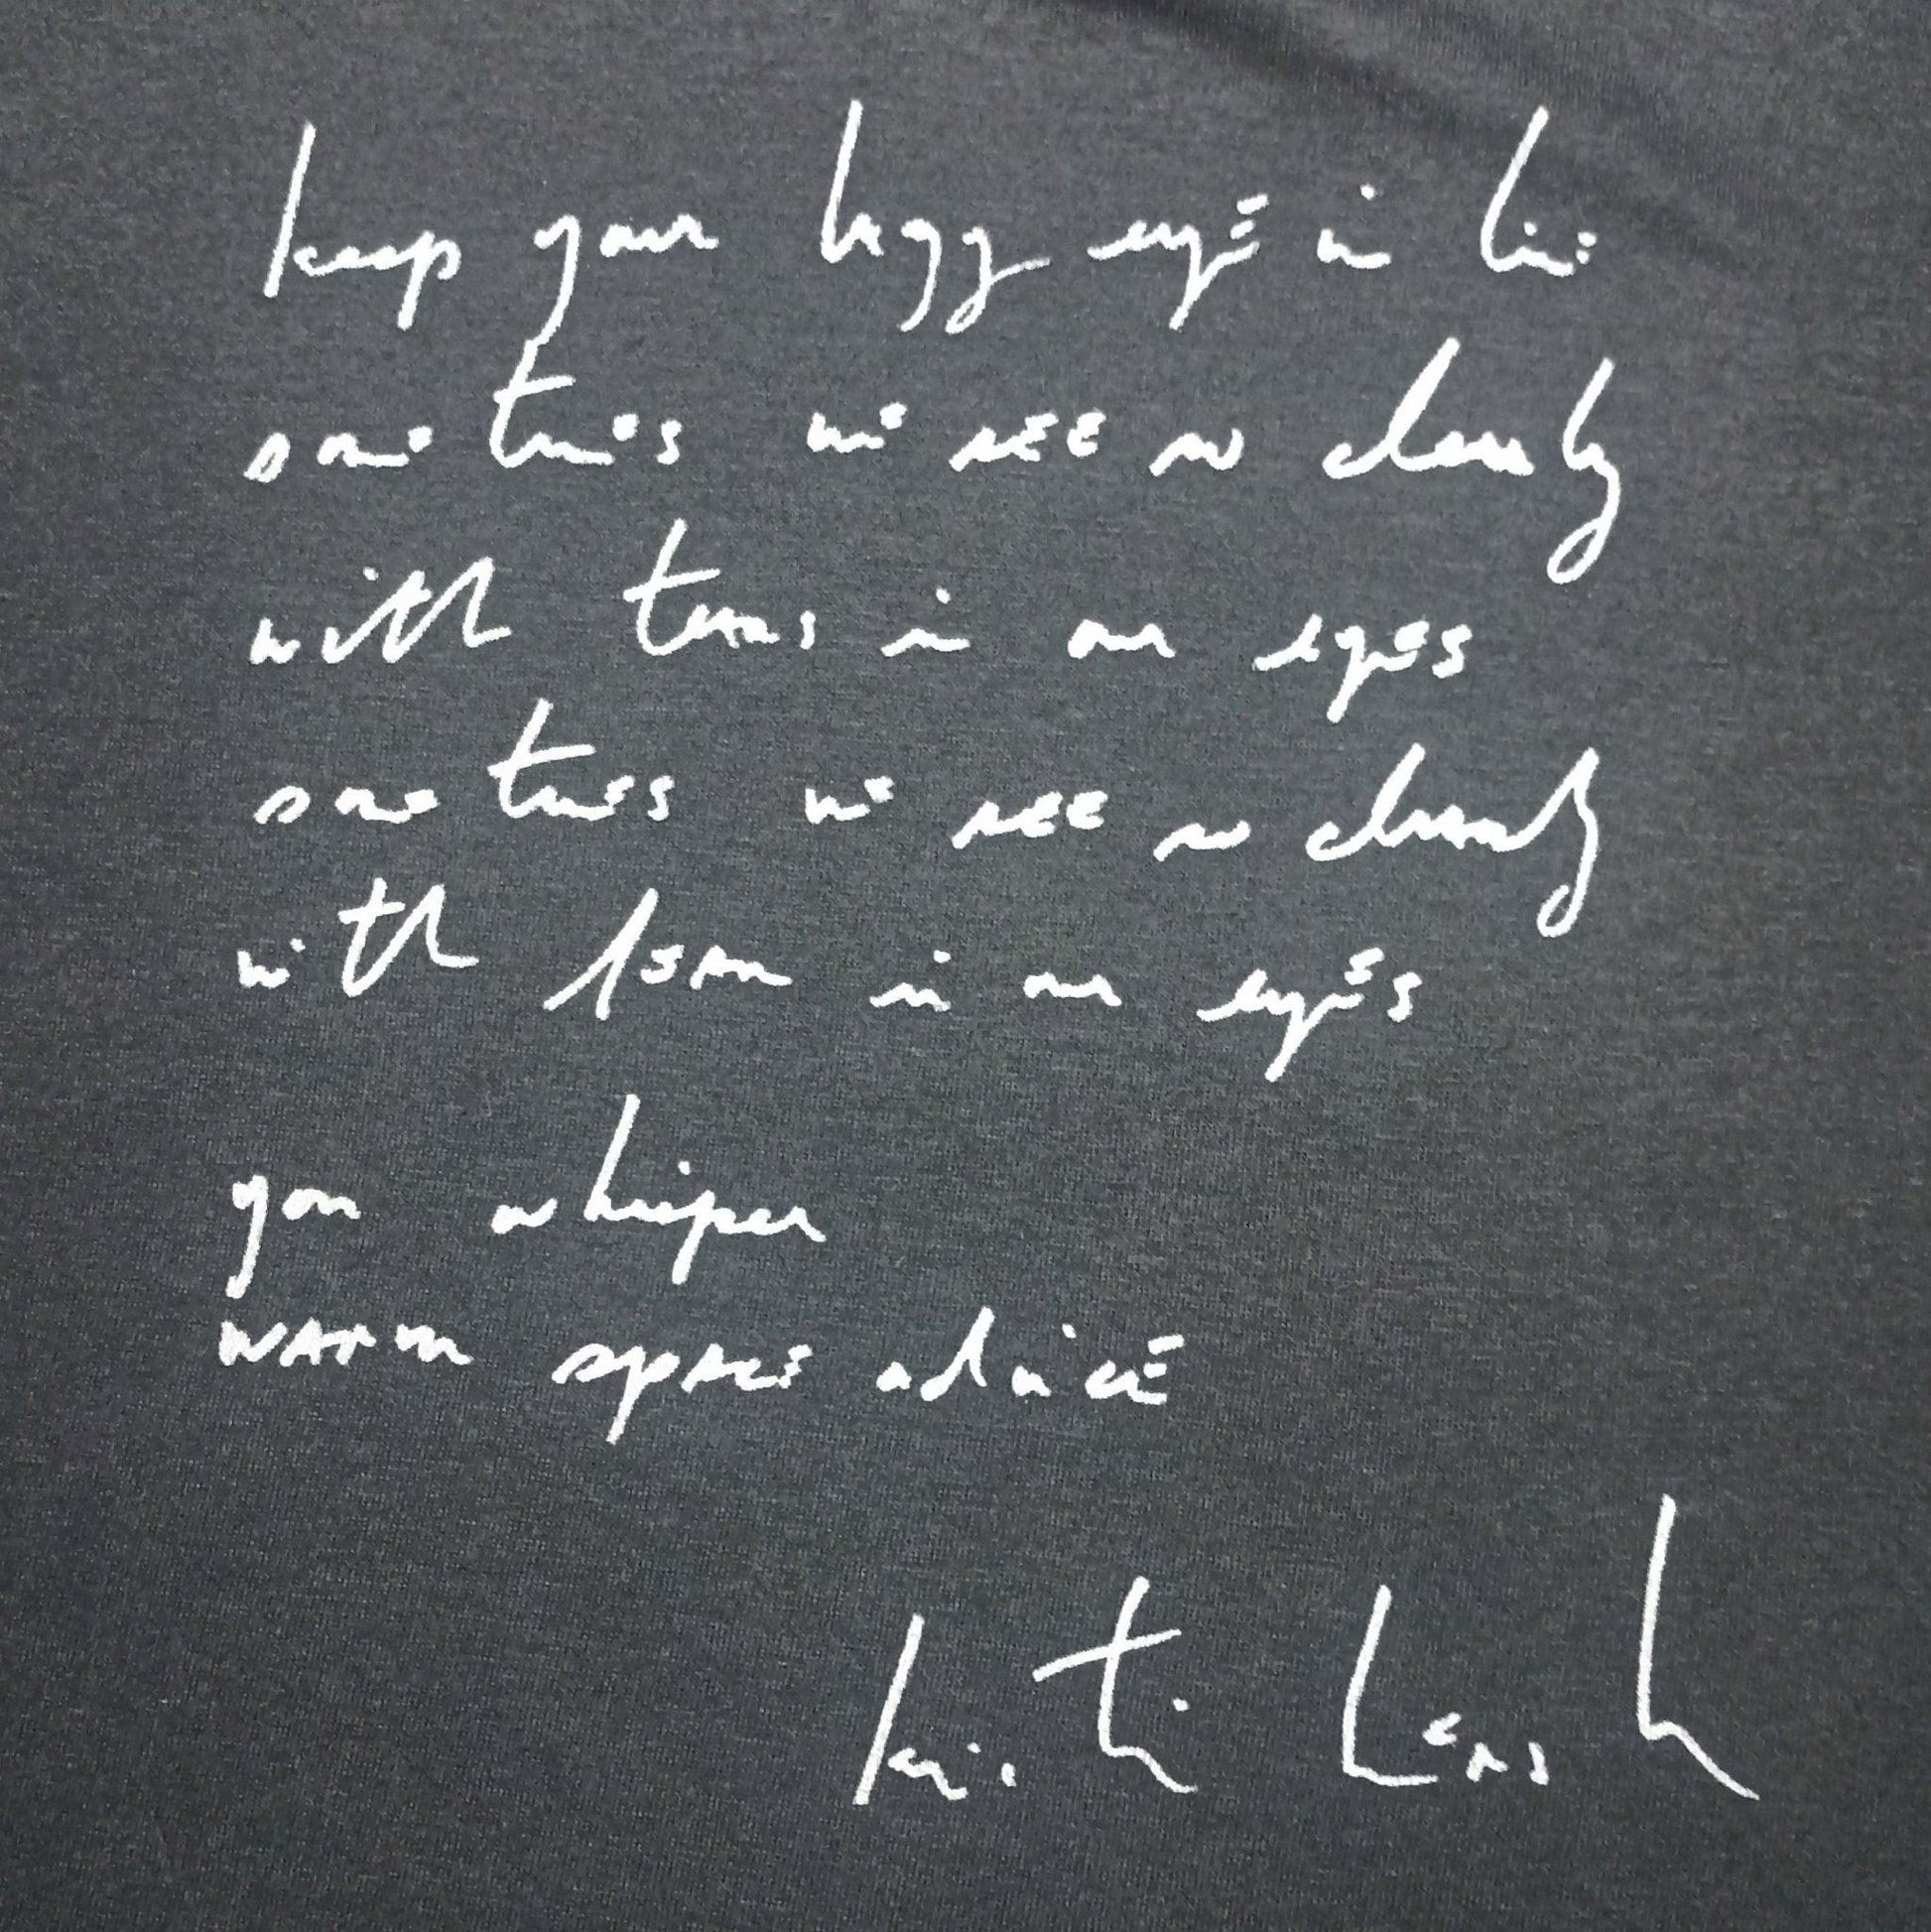 keep your eye in
sometimes we see so clearly
with tears in our eyes
sometimes we see so clearly
with fear in our eyes
you whisper
warm space advice
kristin hersh